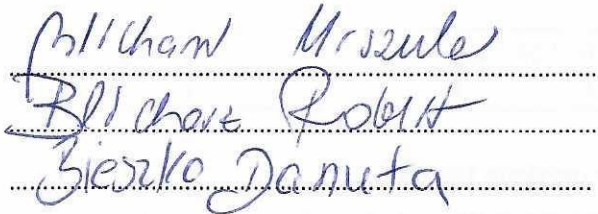 Blicharz Urszula
Blicharz Robert
Bieszko Danuta